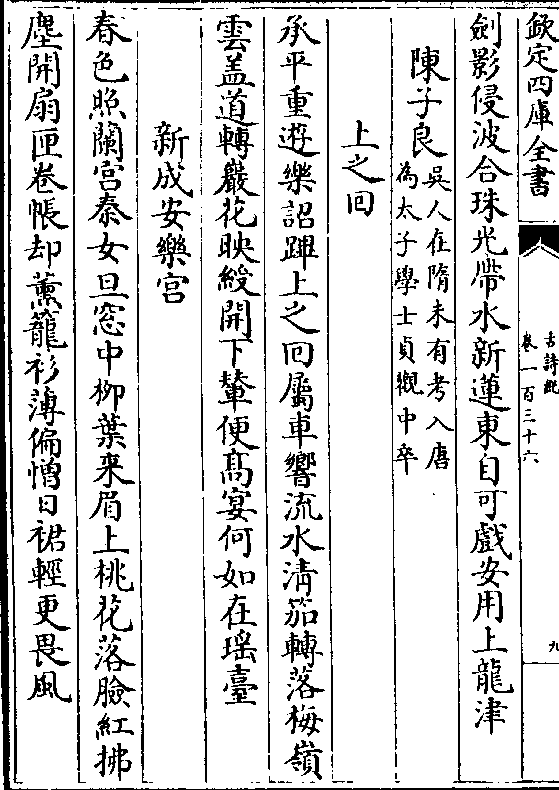 欽定四庫全書
古詩紀
卷一百三十六
九
劍影侵波合珠光帶水新蓮東自可戲安用上龍津
陳子良
吳人在隋未有考入唐
為太子學士貞觀中卒
上之回
承平重遊樂詔蹕上之回屬車響流水清笳轉落梅嶺
雲盖道轉巖花映綬開下輦便髙宴何如在瑶臺
新成安樂宮
春色照蘭宮秦女旦窓中柳葉来眉上桃花落臉紅拂
塵開扇匣卷帳却薰籠衫薄偏憎日裙輕更畏風